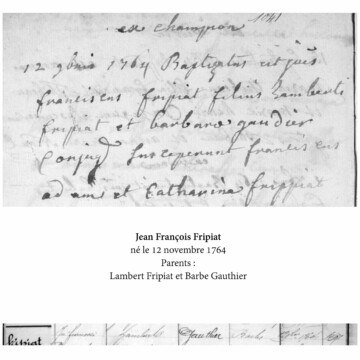 ex champion 1041
12 9bris 1764 Baptizatus est joês
franciscus fripiat filius Lamberti
fripiat et barbara gaudier
Conjug Susceperunt franciscus
adam et Catharina frippiat
Jean François Fripiat
né le 12 novembre 1764
Parents :
Lambert Fripiat et Barbe Gauthier
fripiat Lambert Gauthier Barbe